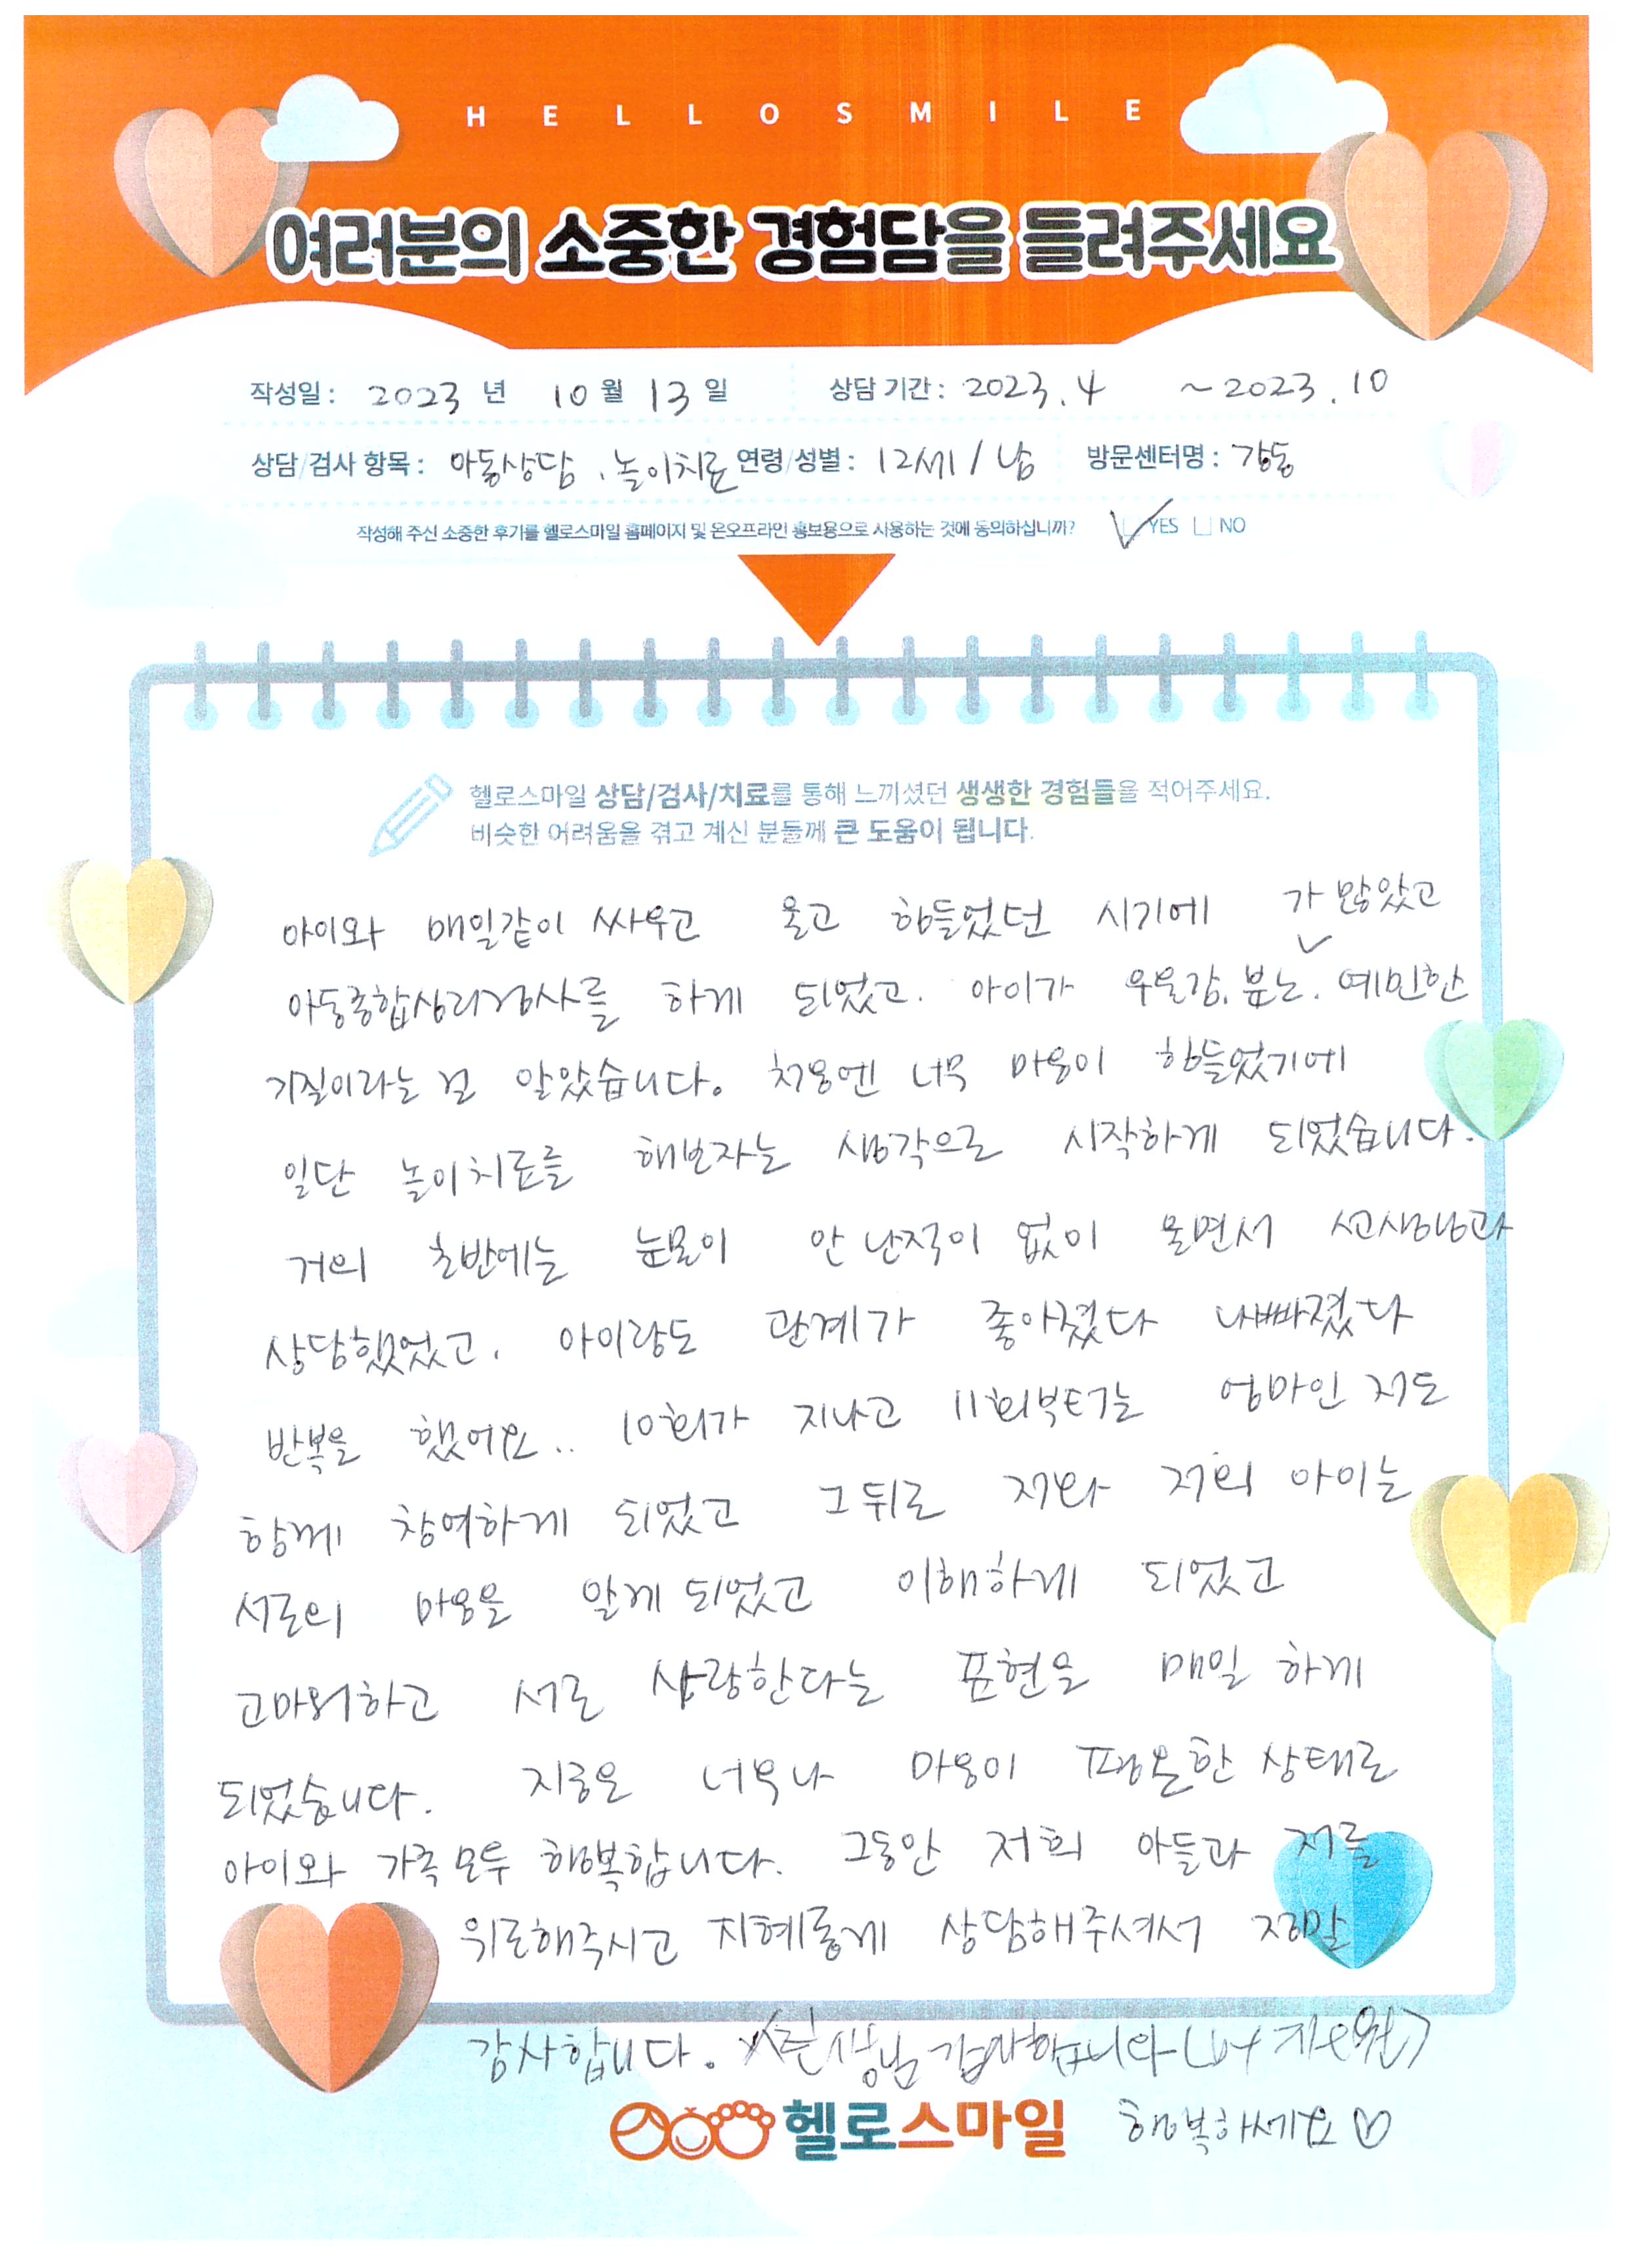 HELLOSMILE
여러분의 소중한 경험담을 들려주세요
작성일 : 2023 년 10 월 13 일 상담 기간 : 2023.4 ~ 2023.10
상담/검사 항목 : 아동상담, 놀이치료 연령/성별 : 12세 / 남 방문센터명 : 강동
작성해 주신 소중한 후기를 헬로스마일 홈페이지 및 온오프라인 홍보용으로 사용하는 것에 동의하십니까? YES NO
헬로스마일 상담/검사/치료를 통해 느끼셨던 생생한 경험들을 적어주세요.
비슷한 어려움을 겪고 계신 분들께 큰 도움이 됩니다.
아이와 매일같이 싸우고 울고 힘들었던 시기에 가 많았고
아동종합심리검사를 하게 되었고. 아이가 우울감. 분노. 예민한
기질이라는 걸 알았습니다. 처음엔 너무 마음이 힘들었기에
일단 놀이치료를 해보자는 생각으로 시작하게 되었습니다.
거의 초반에는 눈물이 안 난적이 없이 울면서 선생님과
상담했었고. 아이랑도 관계가 좋아졌다 나빠졌다
반복을 했어요.. 10회가 지나고 11회부터는 엄마인 저도
함께 참여하게 되었고 그 뒤로 저와 저의 아이는
서로의 마음을 알게 되었고 이해하게 되었고
고마워하고 서로 사랑한다는 표현을 매일 하게
되었습니다. 지금은 너무나 마음이 평온한 상태로
아이와 가족 모두 행복합니다. 그동안 저희 아들과 저를
위로해주시고 지혜롭게 상담해주셔서 정말
감사합니다. 선생님 감사합니다
헬로스마일 행복하세요 ♡